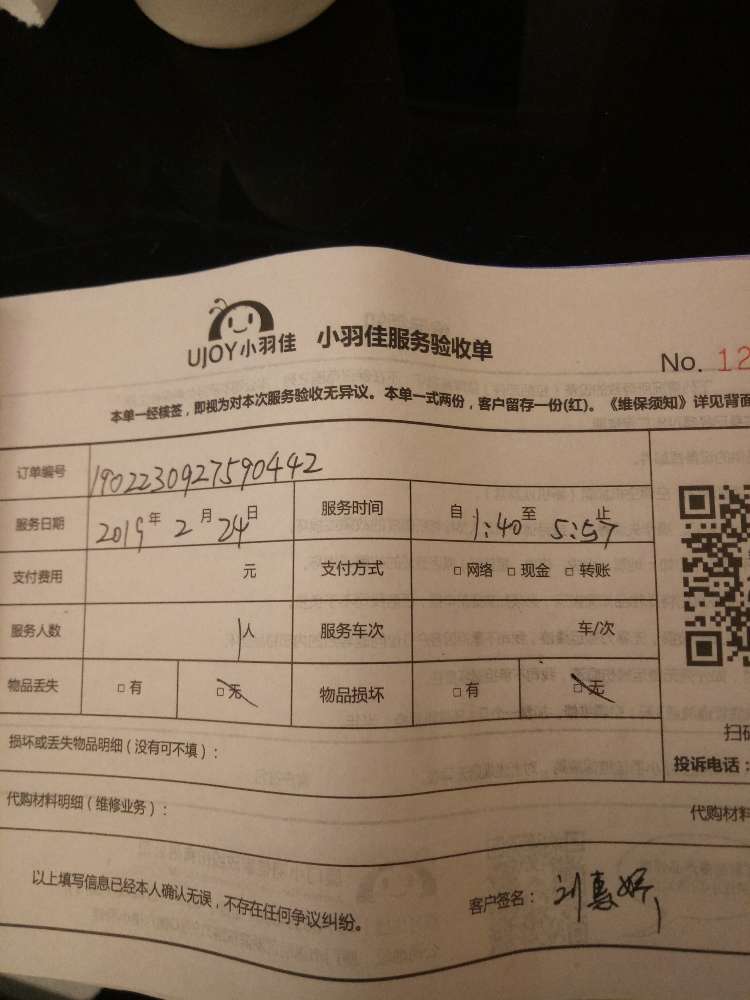 UJOY小羽佳 小羽佳服务验收单
No. 12
本单一经核签，即视为对本次服务验收无异议。本单一式两份，客户留存一份(红)。《维保须知》详见背面
订单编号 1902230927590442
服务日期 2019年 2月 24日 服务时间 自 1:40 至 5:57 止
支付费用 元 支付方式 □ 网络 □ 现金 □ 转账
服务人数 1人 服务车次 车/次
物品丢失 □ 有 □ 无 物品损坏 □ 有 □ 无
损坏或丢失物品明细（没有可不填）：
扫码
投诉电话：
代购材料明细（维修业务）： 代购材料
以上填写信息已经本人确认无误，不存在任何争议纠纷。 客户签名：刘惠娇